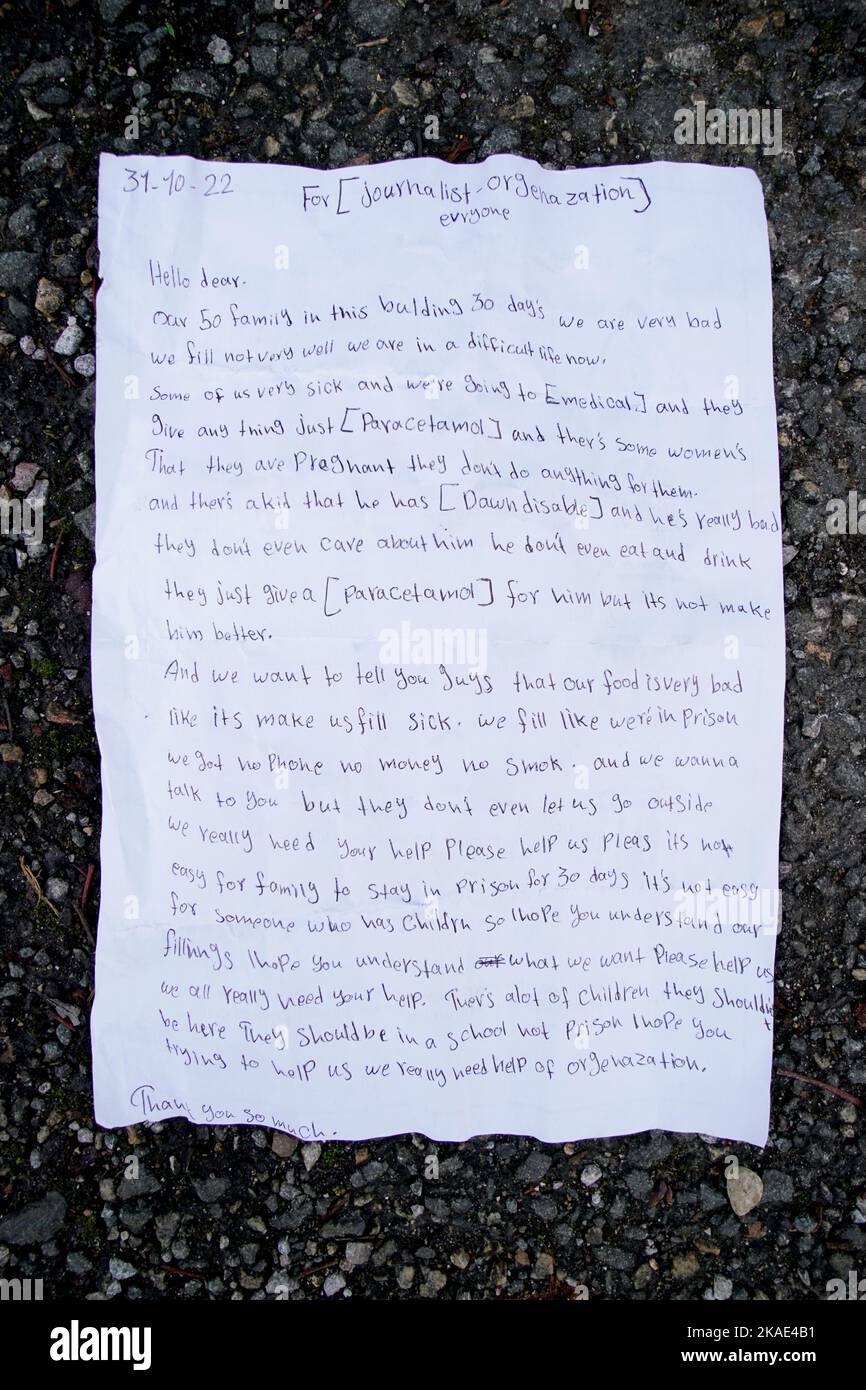 31-10-22
For [journalist-orgenazation]
evryone
Hello dear.
Our 50 family in this bulding 30 day's we are very bad
we fill not very well we are in a difficult life now.
Some of us very sick and we're going to [medical] and they
give any thing just [Paracetamol] and ther's some women's
That they are Pregnant they don't do anything for them.
and ther's a kid that he has [Dawn disable] and he's really bad
they don't even care about him he don't even eat and drink
they just give a [paracetamol] for him but its not make
him better.
And we want to tell you guys that our food is very bad
like its make us fill sick. we fill like we're in prison
we got no Phone no money no smok. and we wanna
talk to you but they don't even let us go outside
we really need your help Please help us Pleas its not
easy for family to stay in prison for 30 days it's not easy
for someone who has Childrn so I hope you understand our
fillings I hope you understand what we want Please help us
we all really need your help. Ther's alot of children they shouldn't
be here They should be in a school not prison I hope you
trying to help us we really need help of orgenazation.
Thank you so much.
alamy
alamy
Image ID: 2KAE4B1
www.alamy.com